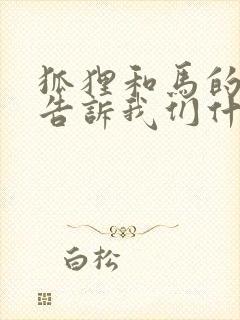 狐狸和馬的
告訴我们什
白松